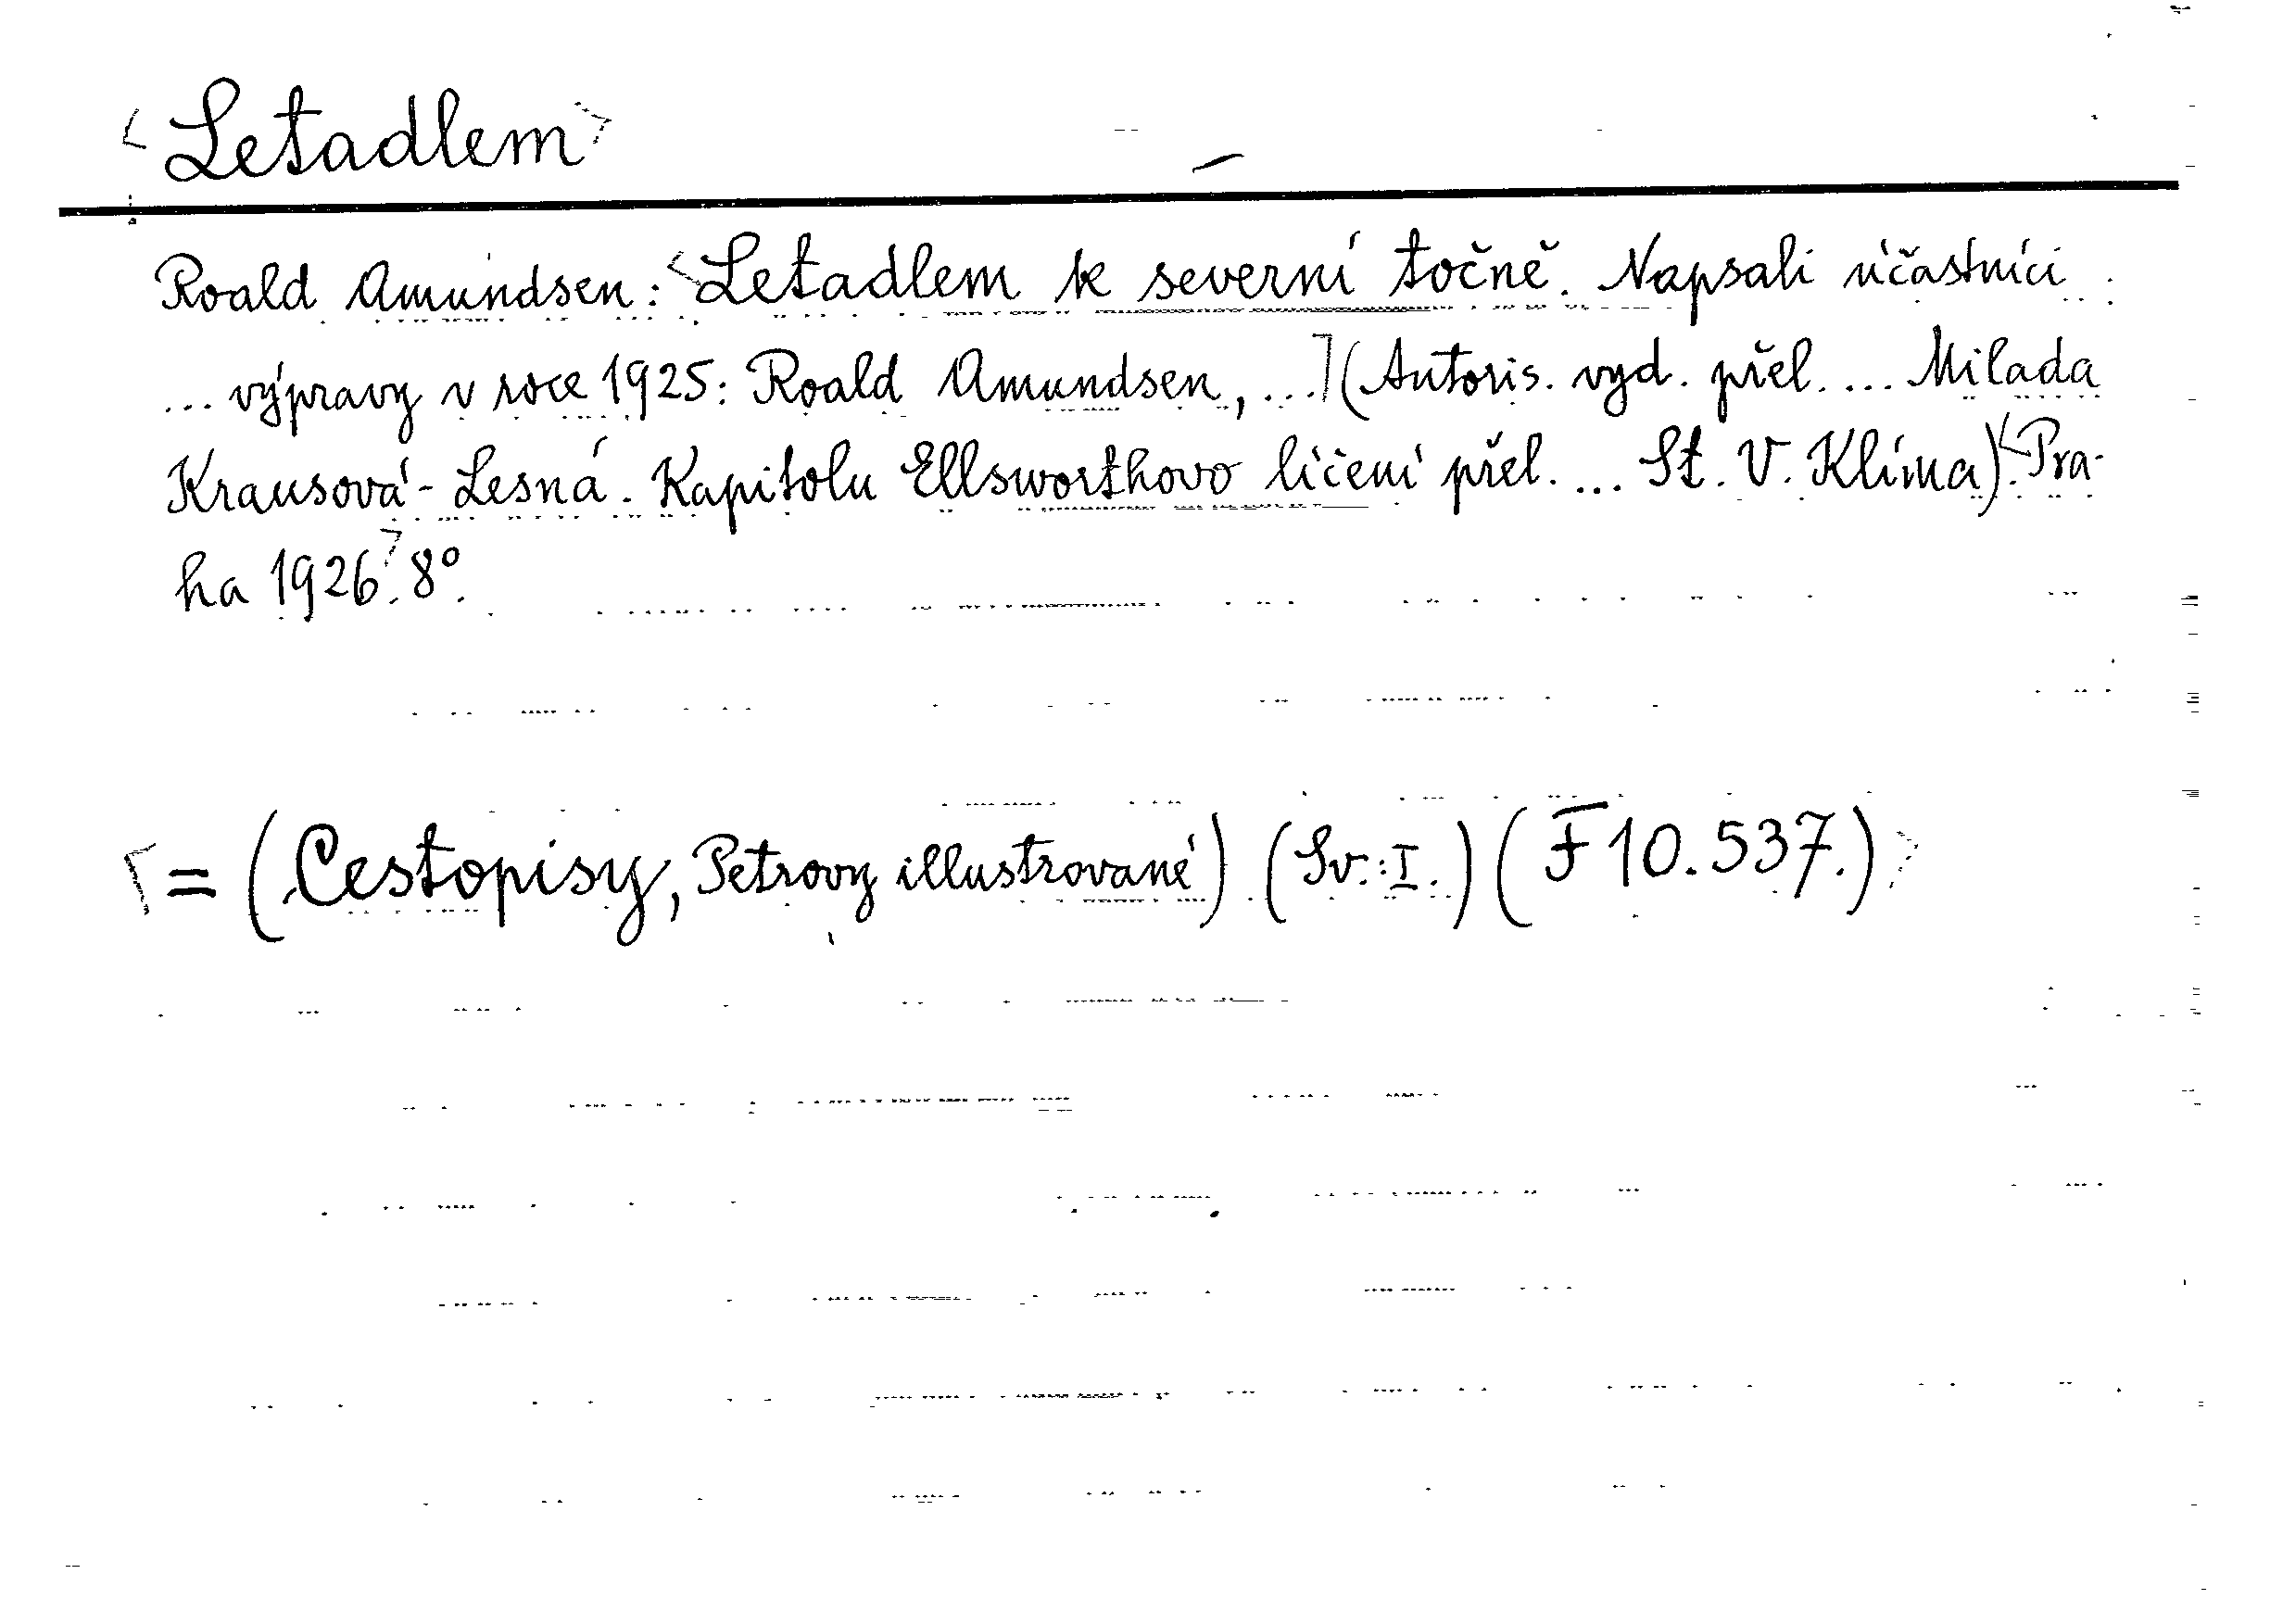 <Letadlem>
Roald Amundsen: <Letadlem k severní točně. Napsali účastníci
... výpravy v roce 1925: Roald Amundsen, ...](Autoris. vyd. přel. ... Milada
Krausová-Lesná. Kapitolu Ellsworthovo líčení přel. ... St. V. Klíma).<Pra-
ha 1926.> 8°.
<= (Cestopisy, Petrovy illustrované) (Sv.: I.) (F 10.537.)>